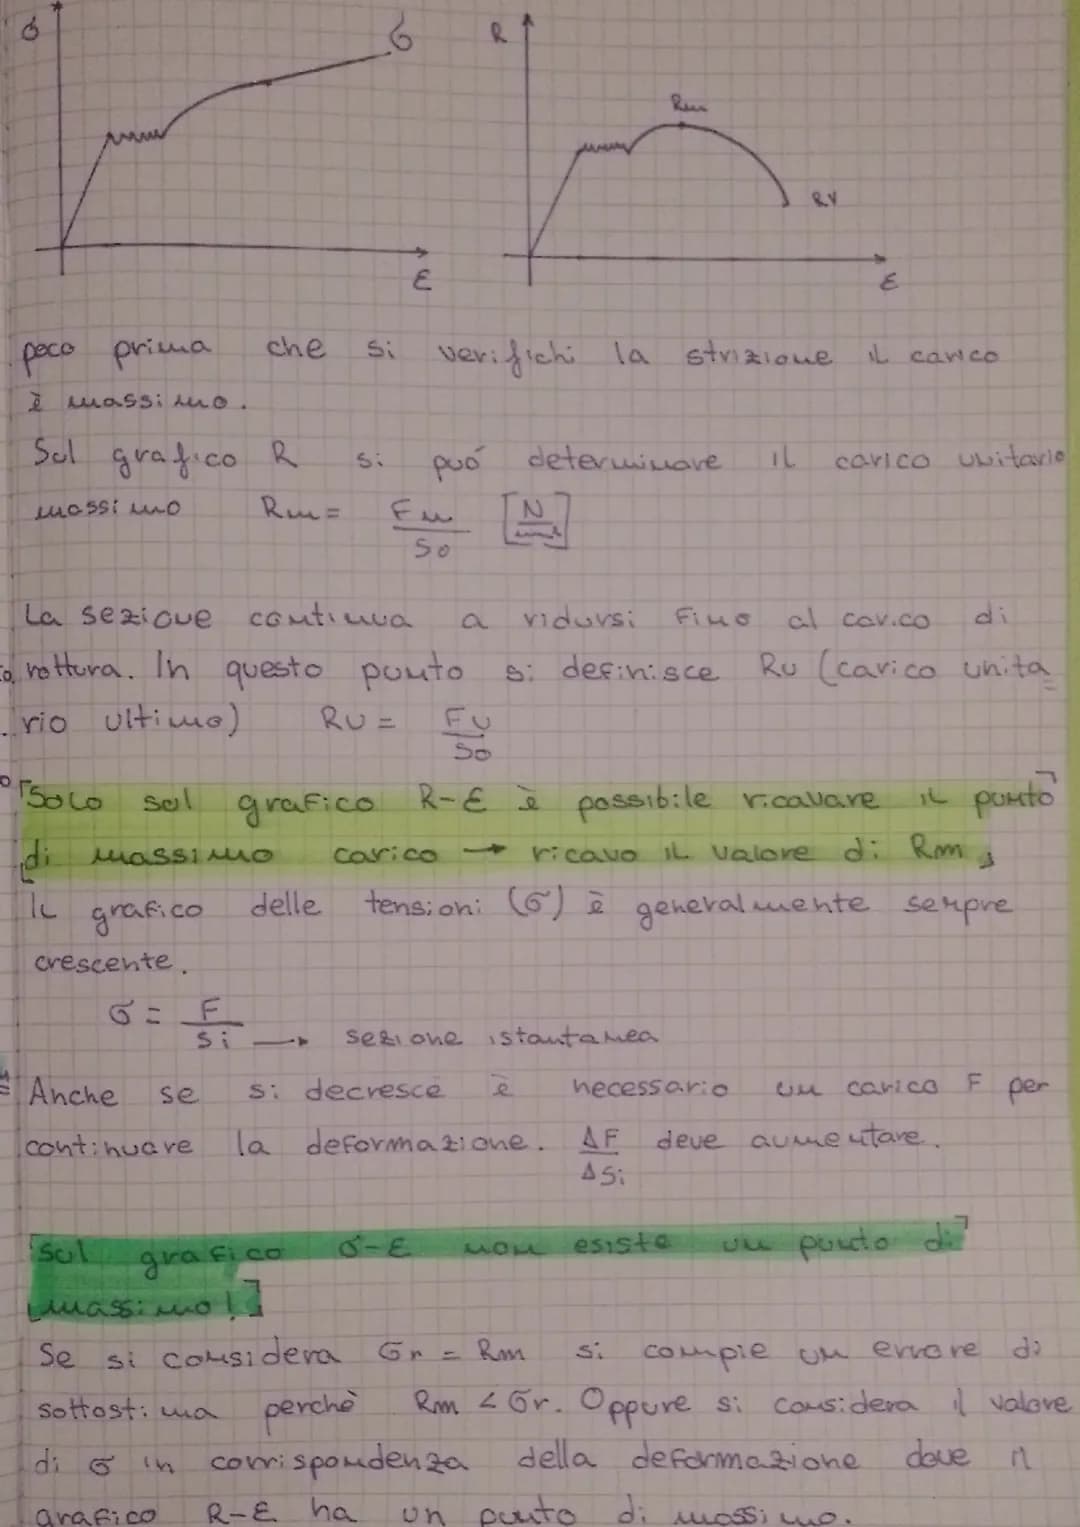 σ
σ
ε
R
Rm
RV
ε
poco prima che si verifichi la strizione il carico
è massimo.
Sul grafico R si può determinare il carico unitario
massimo Rm = Fm/So [N/mm²]
La sezione continua a ridursi fino al carico di
rottura. In questo punto si definisce Ru (carico unita
rio ultimo) RU = FU/So
[Solo sul grafico R-ε è possibile ricavare il punto
di massimo carico → ricavo il valore di Rm]
Il grafico delle tensioni (σ) è generalmente sempre
crescente.
σ = F/Si → sezione istantanea
Anche se si decresce è necessario un carico F per
continuare la deformazione. ΔF/ΔSi deve aumentare.
[Sul grafico σ-ε non esiste un punto di
massimo!]
Se si considera σr = Rm si compie un errore di
sottostima perchè Rm < σr. Oppure si considera il valore
di σ in corrispondenza della deformazione dove il
grafico R-ε ha un punto di massimo.